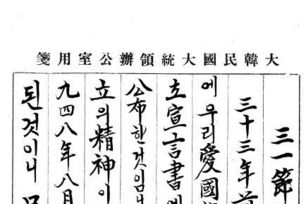 大韓民國大統領辦公室用箋
三一節
三十三年
에 우리 愛國
立宣言書에
公布한것임니
立의精神이
九四八年八月
된것이니